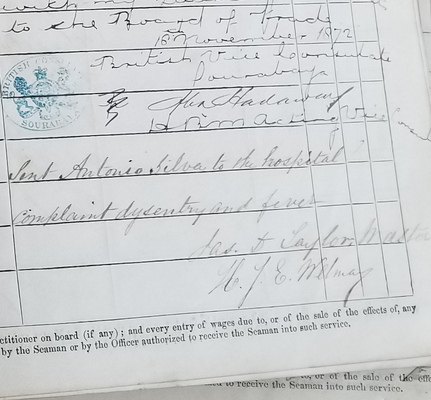 with my
to the Board of Trade
18 November 1872
British Vice Consulate
Sourabaya
BRITISH CONSU
SOURABAYA
Hadaway
HBM Acting Vice
Sent Antonio Silver to the hospital
Complaint dysentery and fever
Jas. D Taylor Master
H. J. E. Welmay
ctitioner on board (if any); and every entry of wages due to, or of the sale of the effects of, any
by the Seaman or by the Officer authorized to receive the Seaman into such service.
or of the sale of the effe
to receive the Seaman into such service.